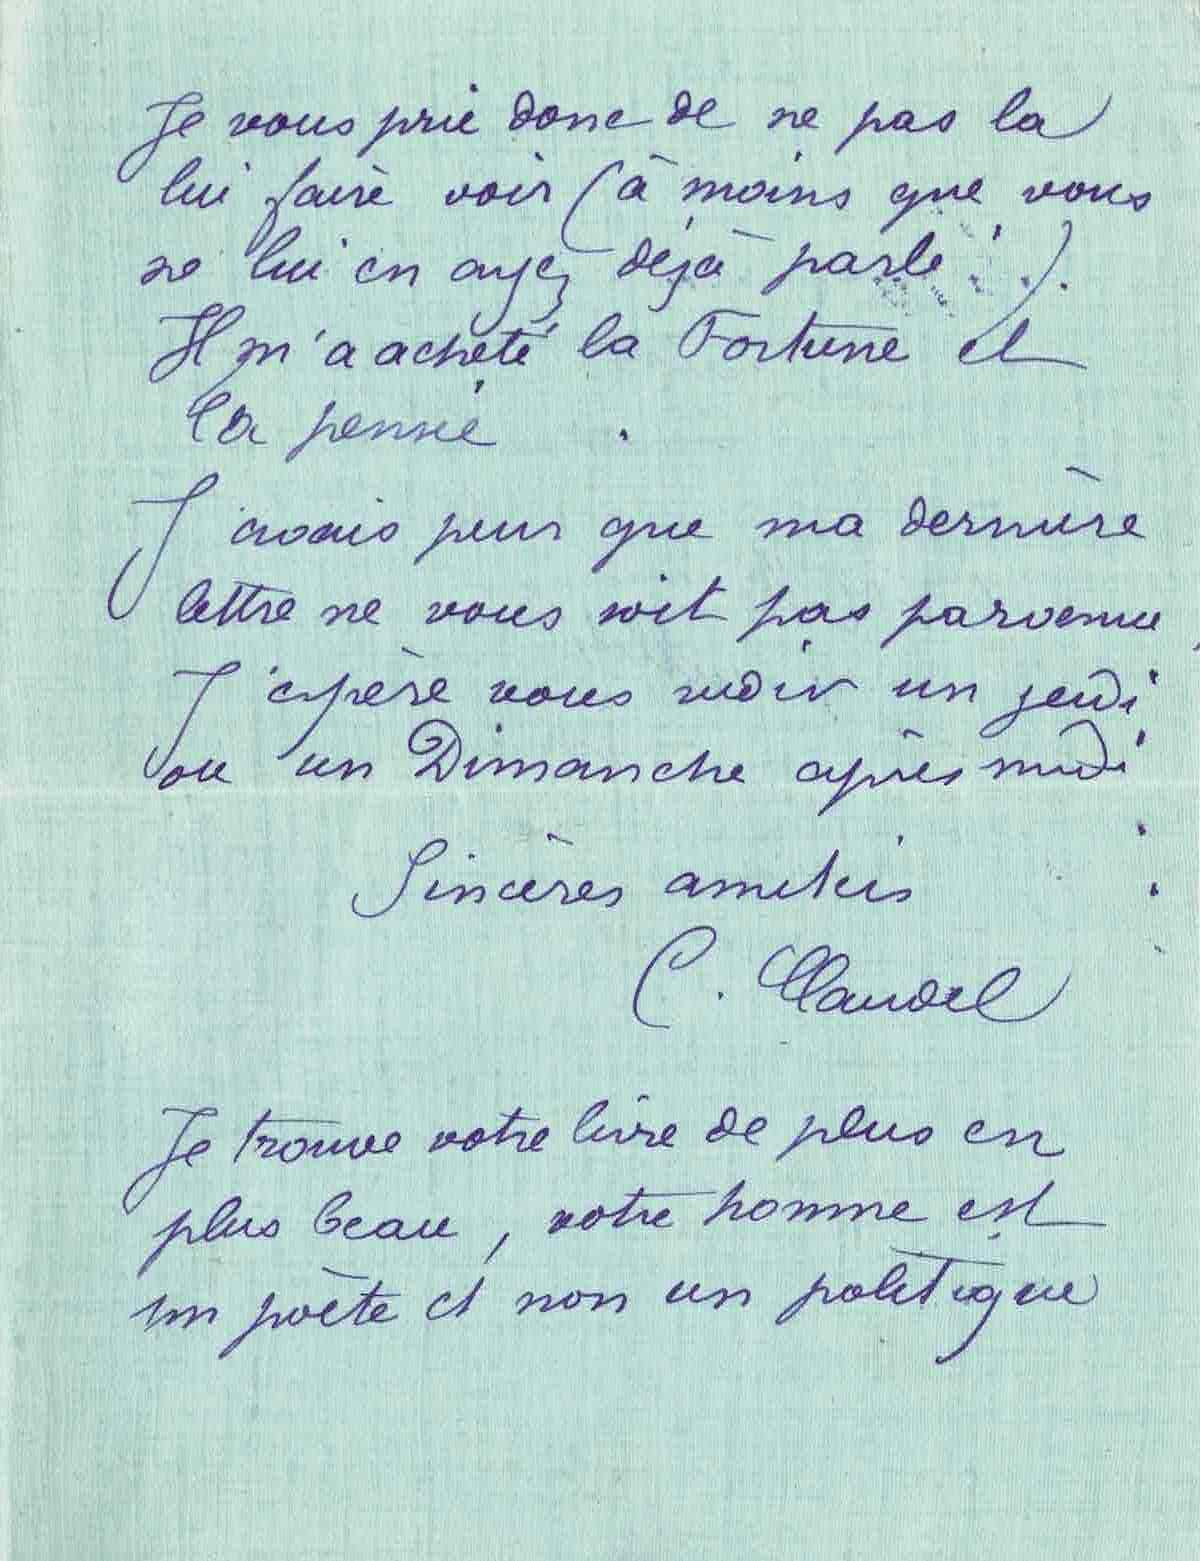 Je vous prie donc de ne pas la
lui faire voir (à moins que vous
ne lui en ayez déjà parlé).
Il m'a acheté la Fortune et
la pensée.
J'avais peur que ma dernière
lettre ne vous soit pas parvenue,
J'espère vous revoir un jeudi
ou un Dimanche après midi
Sincères amitiés
C. Claudel
Je trouve votre livre de plus en
plus beau, votre homme est
un poète et non un politique